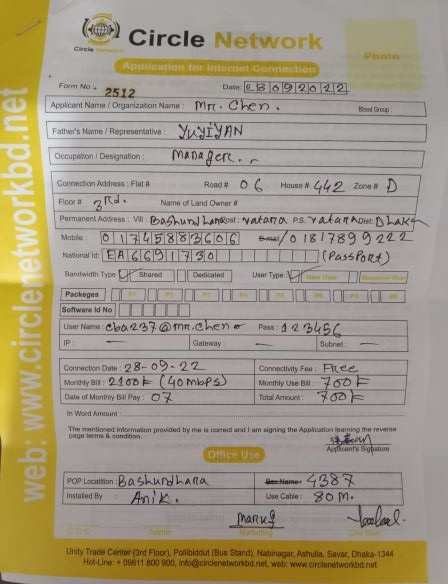 Circle Network
Circle Network
Photo
Application for Internet Connection
Form No - 2512 Date: 28092022
Applicant Name / Organization Name : Mr. Chen. Blood Group :
Father's Name / Representative : YUYIYAN
Occupation / Designation : Manager.
Connection Address : Flat # Road # 06 House # 442 Zone # D
Floor # 3Rd. Name of Land Owner #
Permanent Address : Vill : Bashundhara Post : vatara P.S. vatara Dist: Dhaka
Mobile : 01745883606 E-mail / 01817899222
National Id: EA6691730 (Passport)
Bandwidth Type Shared Dedicated User Type : New User
Packeges P1 P2 P3 P4 P5 P6 P7 P8
Software Id No
User Name : cba237@mr.chen Pass : 123456
IP : — Gateway : — Subnet : —
Connection Date : 28-09-22 Connectivity Fee : Free
Monthly Bill : 2100 (40mbps) Monthly Use Bill : 700
Date of Monthly Bill Pay : 07 Total Amount : 700
In Word Amount :
The mentioned information provided by me is correct and I am signing the Application learning the reverse
page terms & condition.
Applicant's Signature
Office Use
POP Locatition : Bashundhara Box Name : 4387
Installed By : Anik. Use Cable : 80 m.
C.C.D Admin Marketing Line Man
Unity Trade Center (3rd Floor), Pollibiddut (Bus Stand), Nabinagar, Ashulia, Savar, Dhaka-1344
Hot-Line : + 09611 800 900, info@circlenetworkbd.net, web: www.circlenetworkbd.net
web: www.circlenetworkbd.net